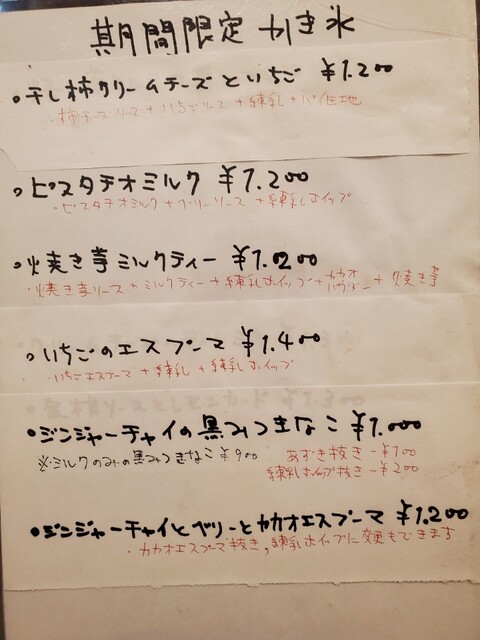 期間限定 かき氷
・干し柿クリームチーズといちご ¥1.200
・柿チーズソース+いちごソース+練乳+パイ生地
・ピスタチオミルク ¥1.200
・ピスタチオミルク+ベリーソース+練乳ホイップ
・焼き芋ミルクティー ¥1.020
・焼き芋ソース+ミルクティー+練乳ホイップ+カカオパウダー+焼き芋
・いちごのエスプーマ ¥1.400
・いちごエスプーマ+練乳+練乳ホイップ
・ジンジャーチャイの黒みつきなこ ¥1.000
※ミルクのみの黒みつきなこ¥900 あずき抜き-¥100
練乳ホイップ抜き-¥200
・ジンジャーチャイとベリーとカカオエスプーマ ¥1.200
・カカオエスプーマ抜き,練乳ホイップに変更もできます